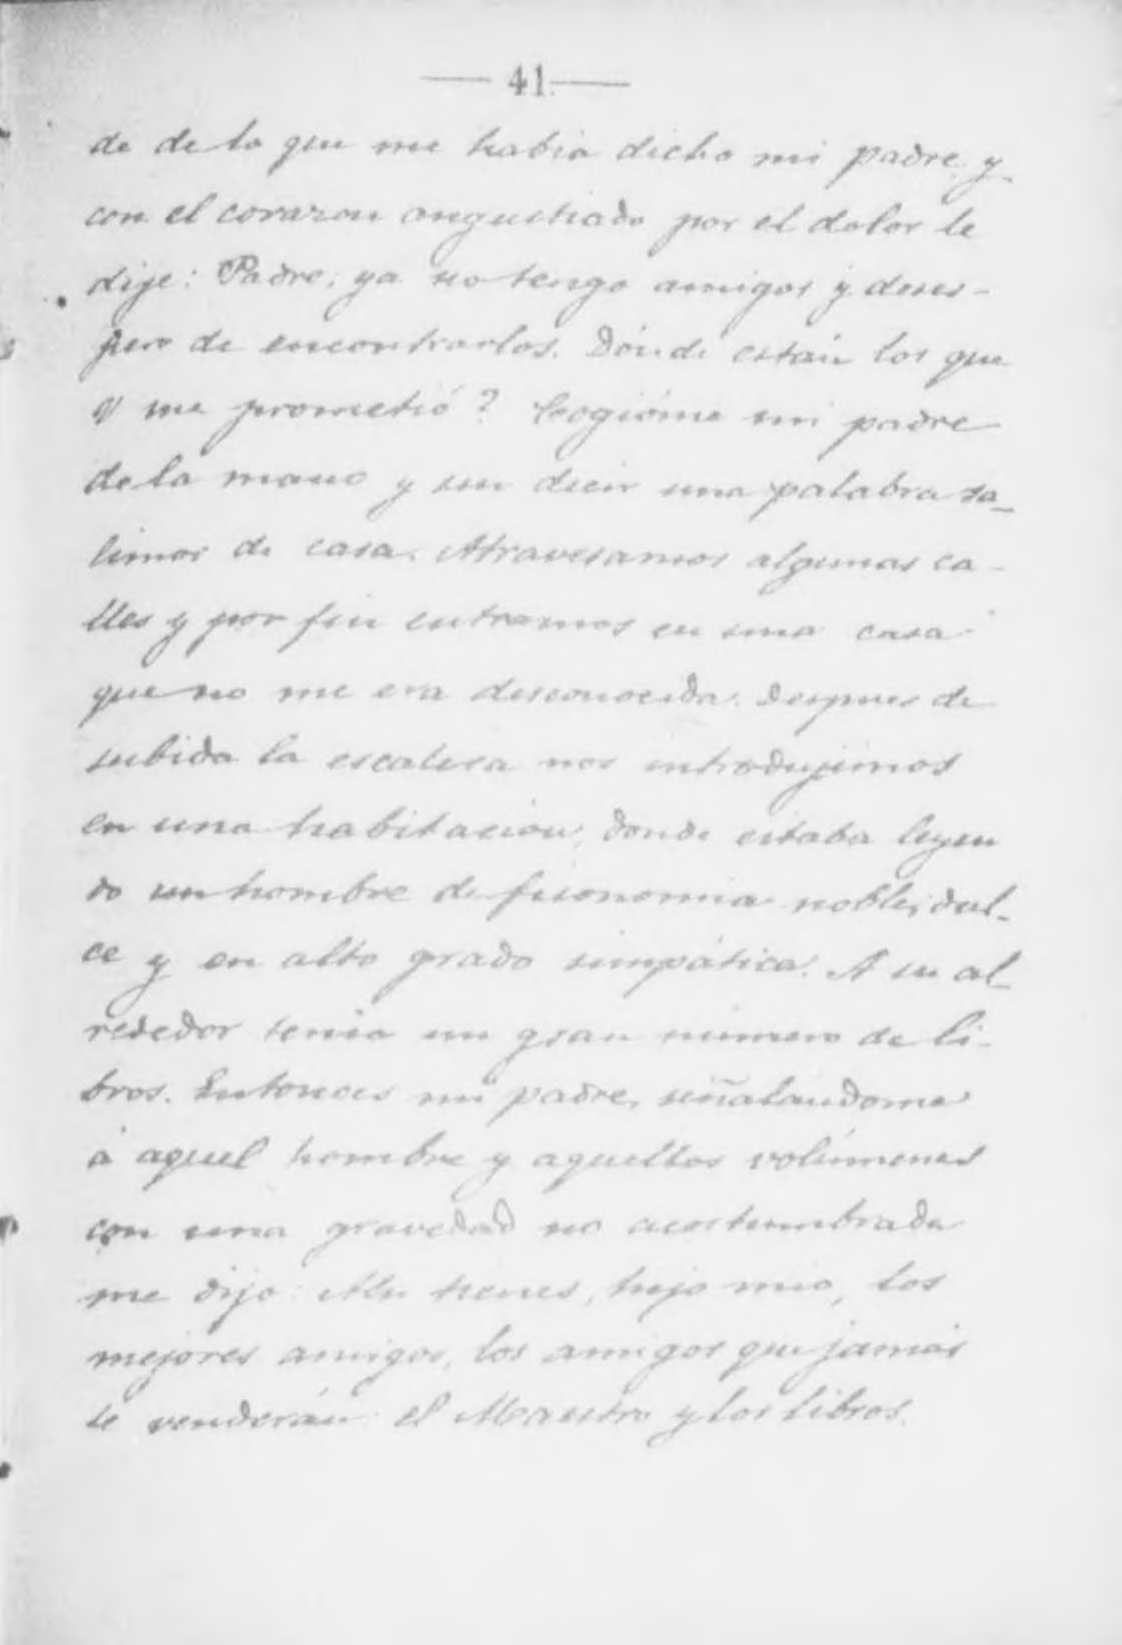 — 41 —
de de lo que me había dicho mi padre, y
con el corazon angustiado por el dolor le
dije: Padre, ya no tengo amigos y deses-
pero de encontrarlos. Dónde están los que
V me prometió? Cogióme mi padre
de la mano y sin decir una palabra sa-
limos de casa. Atravesamos algunas ca-
lles y por fin entramos en una casa
que no me era desconocida. Despues de
subida la escalera nos introdujimos
en una habitacion, donde estaba leyen
do un hombre de fisonomia noble, dul-
ce y en alto grado simpática. A su al-
rededor tenia un gran número de li-
bros. Entonces mi padre, señalandome
á aquel hombre y aquellos volúmenes
con una gravedad no acostumbrada
me dijo: Ahi tienes, hijo mio, los
mejores amigos, los amigos que jamás
te venderán: el Maestro y los libros.